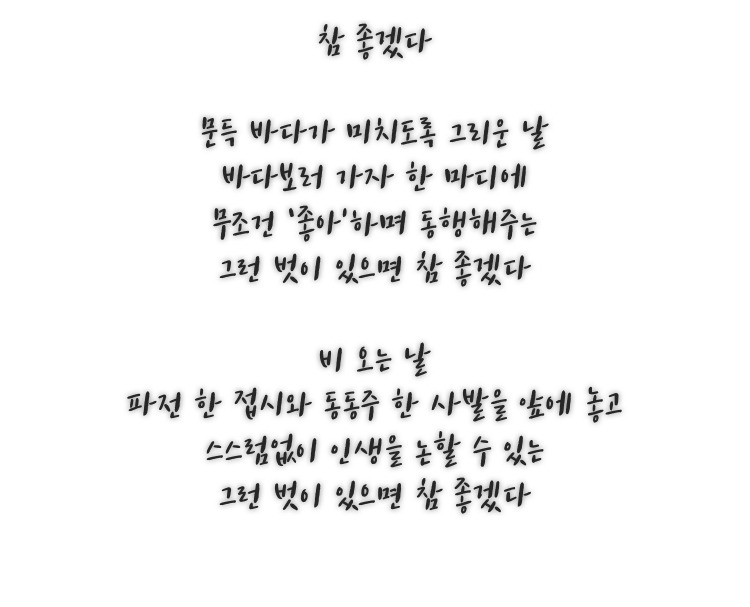 참 좋겠다
문득 바다가 미치도록 그리운 날
바다보러 가자 한 마디에
무조건 '좋아'하며 동행해주는
그런 벗이 있으면 참 좋겠다
비 오는 날
파전 한 접시와 동동주 한 사발을 앞에 놓고
스스럼없이 인생을 논할 수 있는
그런 벗이 있으면 참 좋겠다